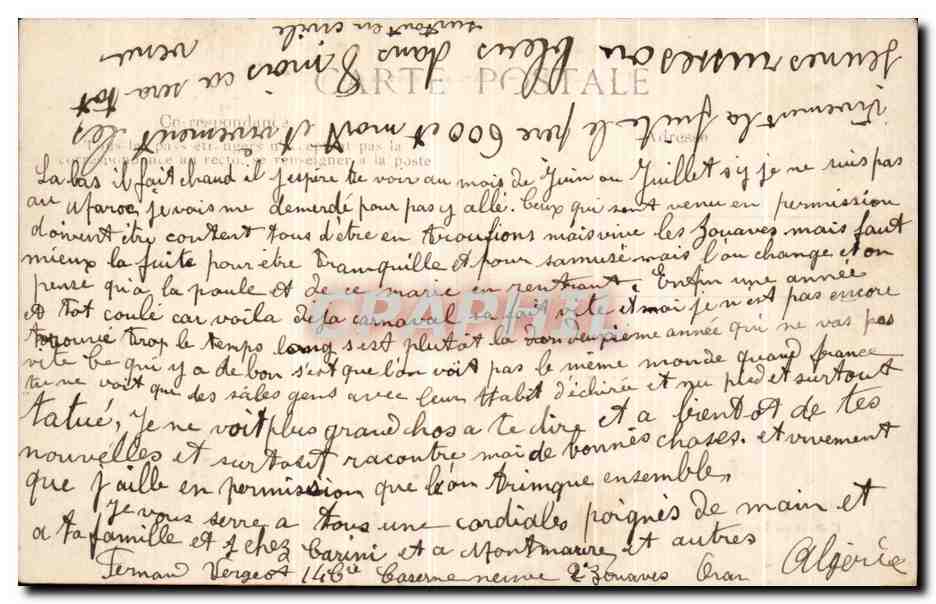 CARTE POSTALE
Correspondance
Tous les pays étrangers n'acceptent pas la
correspondance au recto, se renseigner à la poste
Adresse
La bas il fait chaud il j'espère te voir au mois de Juin ou Juillet s'y je ne suis pas
au Maroc, je vais me demerdé pour pas y allé. Ceux qui sont venu en permission
doivent être content tous d'etre en troufions mais vive les Zouaves mais faut
mieux la fuite pour être tranquille et pour samusé mais l'on change et on
pense qu'a la poule et de ce marie en rentrant. Enfin une année
et tot coulé car voila deja carnaval sa fait vite et moi je n est pas encore
trouvé trop le temps long s'est plutôt la deuxieme année qui ne vas pas
vite Ce qui y a de bon s'est que l'on voit pas le même monde quand france
tu ne voit que des sales gens avec leur Habit d'échirée et nu pied et surtout
tatué, Je ne voit plus grand chos a te dire et a bientot de tes
nouvélles et surtout racontre moi de bonnes choses. et vivement
que j'aille en permission que l'on trimque ensemble,
je vous serre a tous une cordiales poignés de main et
a ta famille et chez Carini et a Montmartre et autres
Fernand Vergeot 14 Cie Caserne neuve 2e Zouaves Oran Algérie
Vivement la fuite le pere 600 et mort et vivement les
jeunes russes ou bleus dans 8 mois ca sera tot
venu
surtout en civile
CPAPHIL